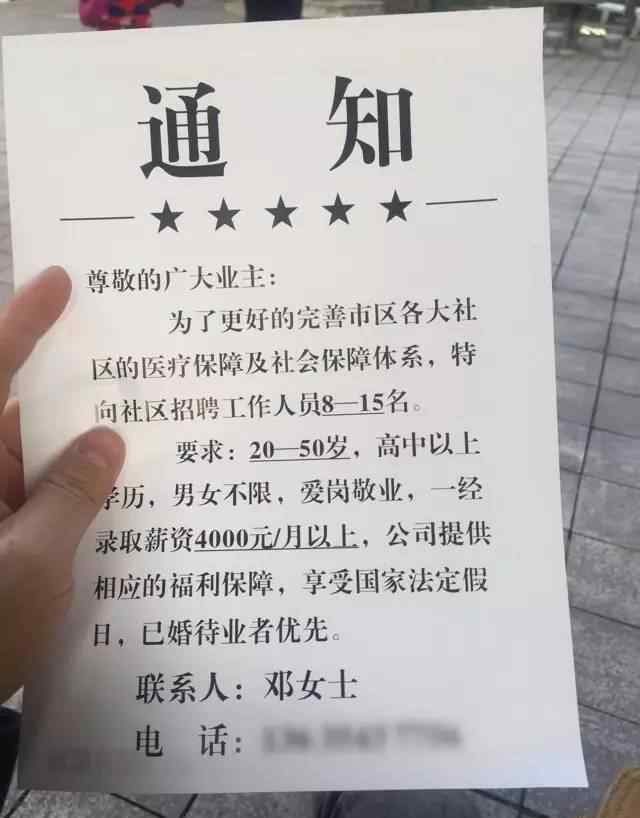 通 知
★★★★★
尊敬的广大业主：
为了更好的完善市区各大社
区的医疗保障及社会保障体系，特
向社区招聘工作人员8—15名。
要求：20—50岁，高中以上
学历，男女不限，爱岗敬业，一经
录取薪资4000元/月以上，公司提供
相应的福利保障，享受国家法定假
日，已婚待业者优先。
联系人：邓女士
电 话：